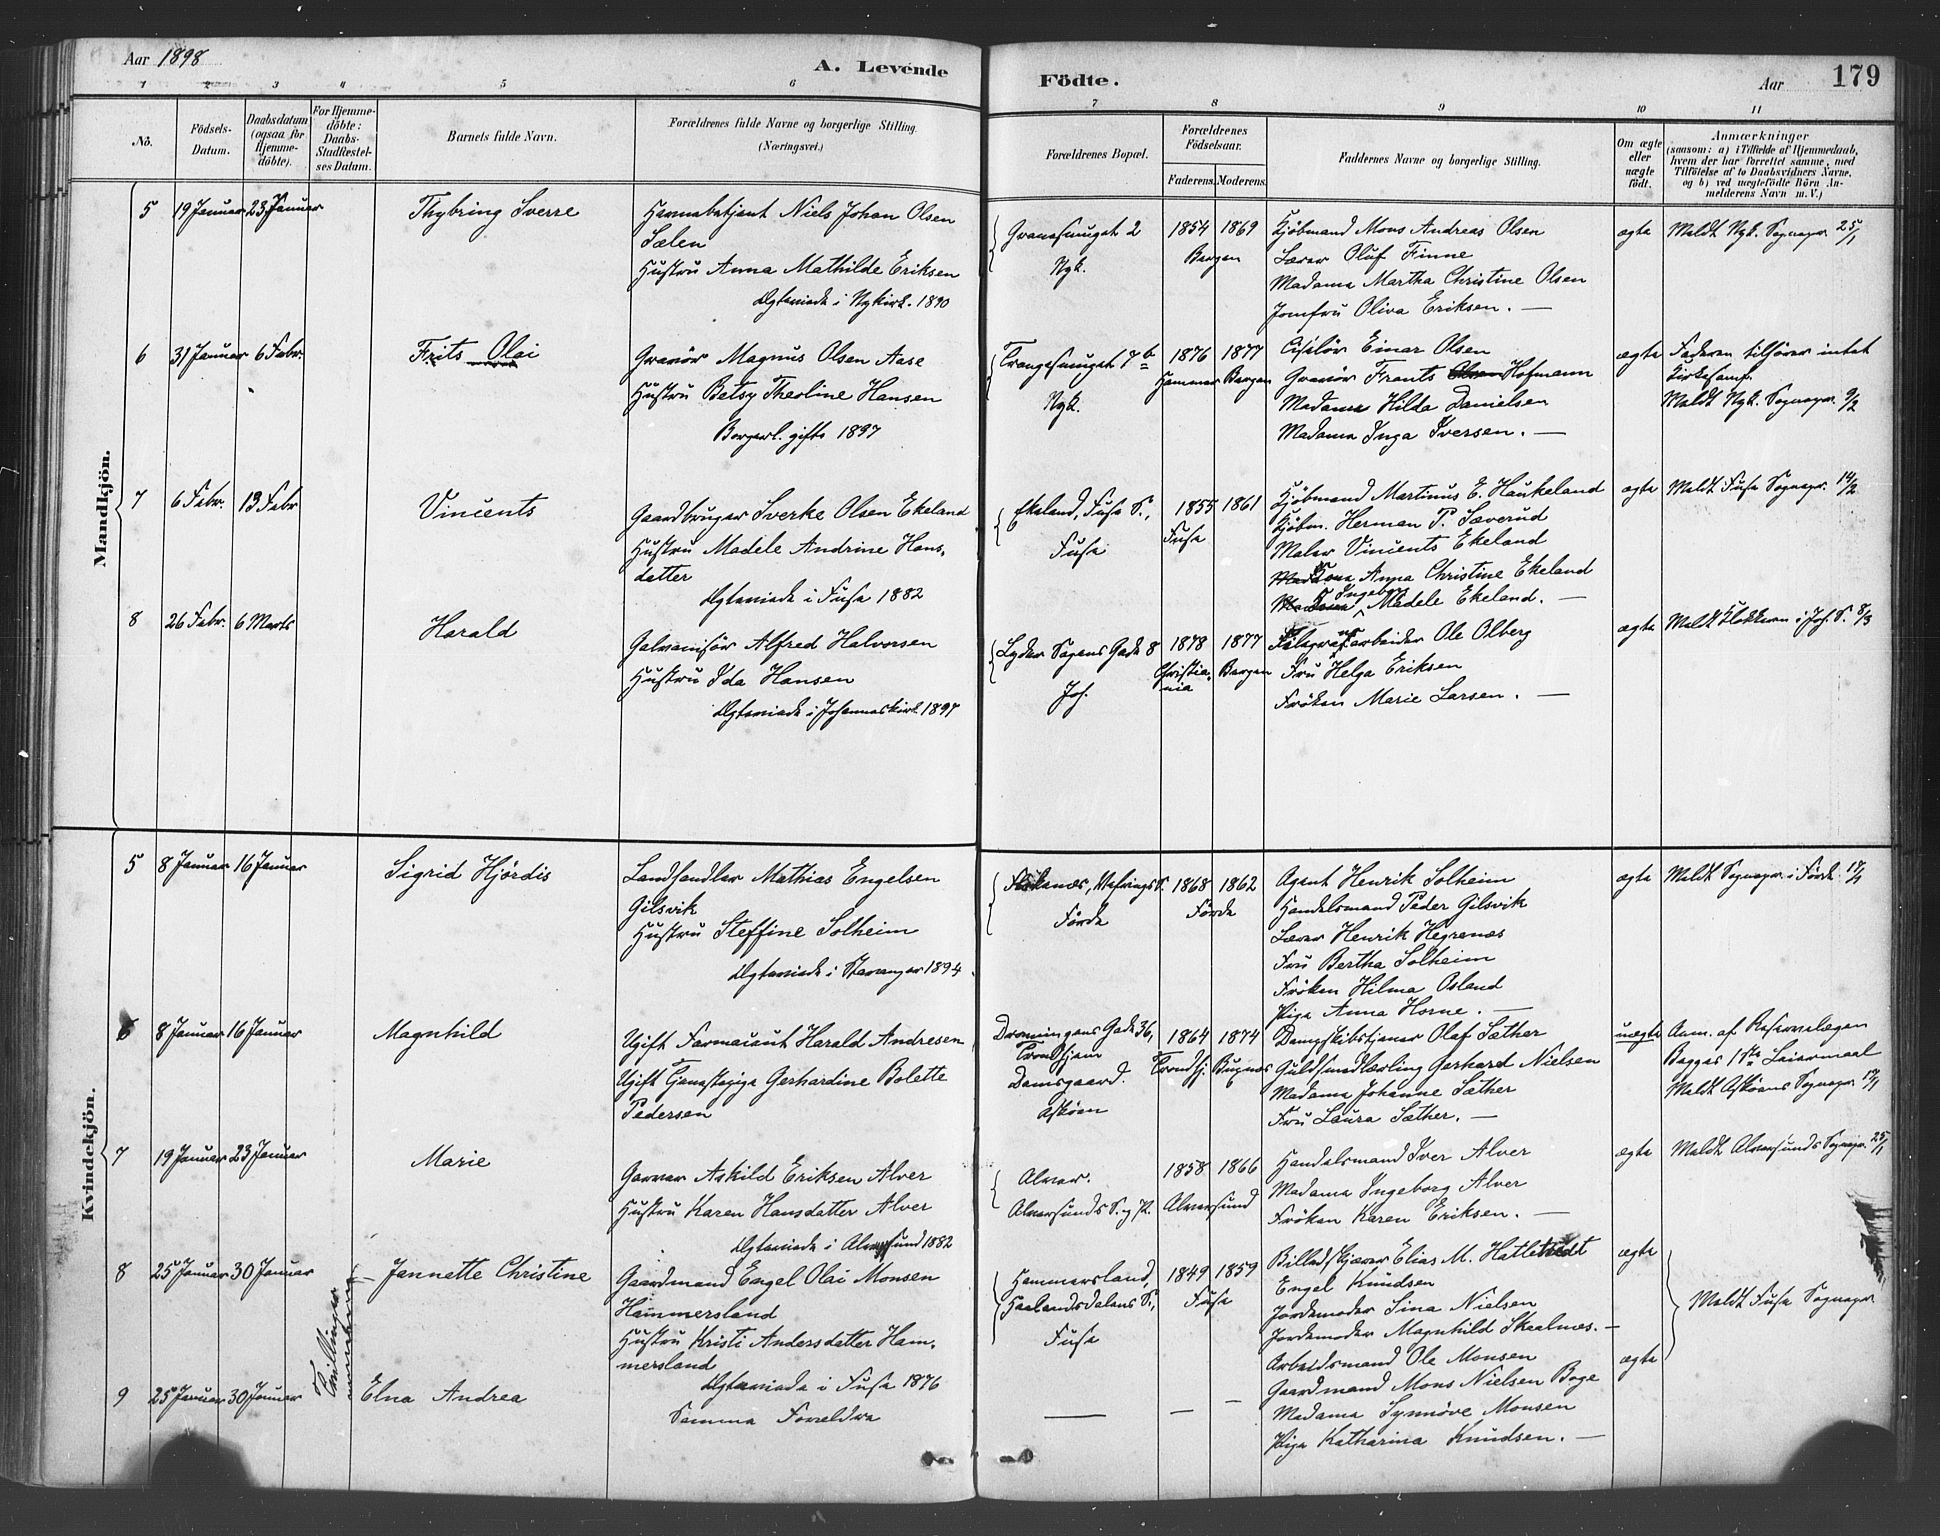 Aar 1898
A. Levende
Födte.
Aar
179
1 2 3 4 5 6 7 8 9 10 11
No.
Födsels-
Datum.
Daabsdatum
(ogsaa for
Hjemme-
döbte).
For Hjemme-
döbte:
Daabs-
Stadfæstel-
ses Datum.
Barnets fulde Navn.
Forældrenes fulde Navne og borgerlige Stilling.
(Næringsvei.)
Forældrenes Bopæl.
Forældrenes
Födselsaar.
Faderens. Moderens.
Faddernes Navne og borgerlige Stilling.
Om ægte
eller
uægte
födt.
Anmærkninger
(saasom: a) i Tilfælde af Hjemmedaab,
hvem der har forrettet samme, med
Tilföielse af to Daabsvidners Navne,
og b) ved uægtefödte Börn An-
melderens Navn m. V.)
Mandkjön.
5 19 Januar 23 Januar
Thybring Sverre
Havnebetjent Niels Johan Olsen
Sælen
Hustru Anna Mathilde Eriksen
Ægteviede i Nykirk. 1890
Nyk.
1854 1869
Bergen
Kjöbmand Mons Andreas Olsen
Lærer Oluf Finne
Madame Martha Christine Olsen
Jomfru Oliva Eriksen. —
ægte
Meldt Nyk. Sognepr. 25/1
6 31 Januar 6 Febr.
Frits Olai
Gravör Magnus Olsen Aase
Hustru Betsy Theoline Hansen
Borgerl. gifte 1897
Trangesmuget 7 b
Nyk.
1876 1877
Hammer Bergen
Ciselör Einar Olsen
Gravör Frants Olsen Hofmann
Madame Hilda Danielsen
Madame Inga Iversen. —
ægte
Faderen tilhører intet
Kirkesamf.
Meldt Nyk. Sognepr. 9/2
7 6 Febr. 13 Febr
Vincents
Gaardbruger Sverke Olsen Ekeland
Hustru Madele Andrine Hans-
datter
Ægteviede i Fusa 1882
Ekeland, Fusa S.,
Fusa
1855 1861
Fusa
Kjöbmand Martinus E. Haukeland
Kjöbm. Herman P. Sæverud
Maler Vincents Ekeland
Anna Christine Ekeland
Ingeborg
Madele Ekeland. —
ægte
Meldt Fusa Sognepr. 14/2
8 26 Febr. 6 Marts
Harald
Galvanisör Alfred Halvorsen
Hustru Ida Hansen
Ægteviede i Johanneskirk. 1897
Lyder Sagens Gade 8
Joh.
1878 1877
Christia-
nia
Bergen
arbeider Ole Olberg
Fru Helga Eriksen
Fröken Marie Larsen. —
ægte
Meldt Klokkeren i Joh. S. 8/3
Kvindekjön.
5 8 Januar 16 Januar
Sigrid Hjördis
Landhandler Mathias Engelsen
Gilsvik
Hustru Steffine Solheim
Ægteviede i Stavanger 1894
Förde
1868 1862
Förde
Agent Henrik Solheim
Handelsmand Peder Gilsvik
Lærer Henrik Hegrenæs
Fru Bertha Solheim
Fröken Hilma Osland
Pige Anna Horne. —
ægte
Meldt Sognepr. i Förde 17/1
6 8 Januar 16 Januar
Magnhild
Ugift Farmaceut Harald Andresen
Ugift Tjenestepige Gerhardine Bolette
Pedersen
Dronningens Gade 36,
Trondhjem
Damsgaard.
Askøen
1864 1874
Trondhj.
Dampskibstjener Olaf Sæther
Guldsmedlærling Gerhard Nielsen
Madame Johanne Sæther
Fru Laura Sæther. —
uægte
Anm. af Reservelægen
Begges 1ste Leiermaal
Meldt Askøens Sognepr. 17/1
7 19 Januar 23 Januar
Marie
Garver Askild Eriksen Alver
Hustru Karen Hansdatter Alver
Ægteviede i Alversund 1882
Alver.
Alversunds S. og P.
1858 1866
Alversund
Handelsmand Iver Alver
Madame Ingeborg Alver
Fröken Karen Eriksen. —
ægte
Meldt Alversunds Sognepr. 25/1
8 25 Januar 30 Januar
Tvillinger
Jannette Christine
Gaardmand Engel Olai Monsen
Hammersland
Hustru Kristi Andersdatter Ham-
mersland
Ægteviede i Fusa 1876
Hammersland,
Haalandsdalens S.,
Fusa
1849 1859
Fusa
Billedskjærer Elias M. Hatletvedt
Engel Knudsen
Jordemoder Sina Nielsen
Jordemoder Magnhild Skaalnes. —
ægte
Meldt Fusa Sognepr
9 25 Januar 30 Januar
Elna Andrea
Samme Forældre
— — —
Arbeidsmand Ole Monsen
Gaardmand Mons Nielsen Boge
Madame Synnöve Monsen
Pige Katharina Knudsen. —
ægte